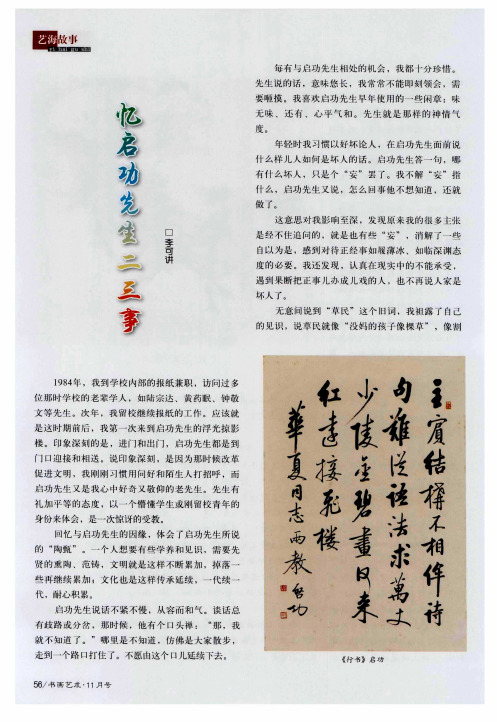 艺海故事
yi hai gu shi
忆启功先生二三事
□李可讲
1984年，我到学校内部的报纸兼职，访问过多
位那时学校的老辈学人，如陆宗达、黄药眠、钟敬
文等先生。次年，我留校继续报纸的工作。应该就
是这时期前后，我第一次来到启功先生的浮光掠影
楼。印象深刻的是，进门和出门，启功先生都是到
门口迎接和相送，说印象深刻，是因为那时候改革
促进文明，我刚刚习惯用问好和陌生人打招呼，而
启功先生又是我心中好奇又敬仰的老先生。先生有
礼加平等的态度，以一个懵懂学生或刚留校青年的
身份来体会，是一次惊讶的受教。
回忆与启功先生的因缘，体会了启功先生所说
的“陶甄”。一个人想要有些学养和见识，需要先
贤的熏陶、范铸，文明就是这样不断累加，掉落一
些再继续累加；文化也是这样传承延续，一代续一
代，耐心积累。
启功先生说话不紧不慢，从容而和气。谈话总
有歧路或分岔，那时候，他有个口头禅：“那，我
就不知道了。”哪里是不知道，仿佛是大家散步，
走到一个路口打住了。不愿由这个口儿延续下去。
每有与启功先生相处的机会，我都十分珍惜。
先生说的话，意味悠长，我常常不能即刻领会，需
要咂摸。我喜欢启功先生早年使用的一些闲章：味
无味、还有、心平气和。先生就是那样的神情气
度。
年轻时我习惯以好坏论人，在启功先生面前说
什么样儿人如何是坏人的话。启功先生答一句，哪
有什么坏人，只是个“妄”罢了。我不解“妄”指
什么，启功先生又说，怎么回事他不想知道，还就
做了。
这意思对我影响至深，发现原来我的很多主张
是经不住追问的，就是也有些“妄”，消解了一些
自以为是，感到对待正经事如履薄冰、如临深渊态
度的必要。我还发现，认真在现实中的不能承受，
遇到果断把正事儿办成儿戏的人，也不再说人家是
坏人了。
无意间说到“草民”这个旧词，我袒露了自己
的见识，说草民就像“没妈的孩子像棵草”，像割
主賓結構不相侔詩
句難從語法求萬丈
少陵金碧畫日来
红遠接飛樓
華夏同志兩教
启功
《行书》启功
56/书画艺术·11月号